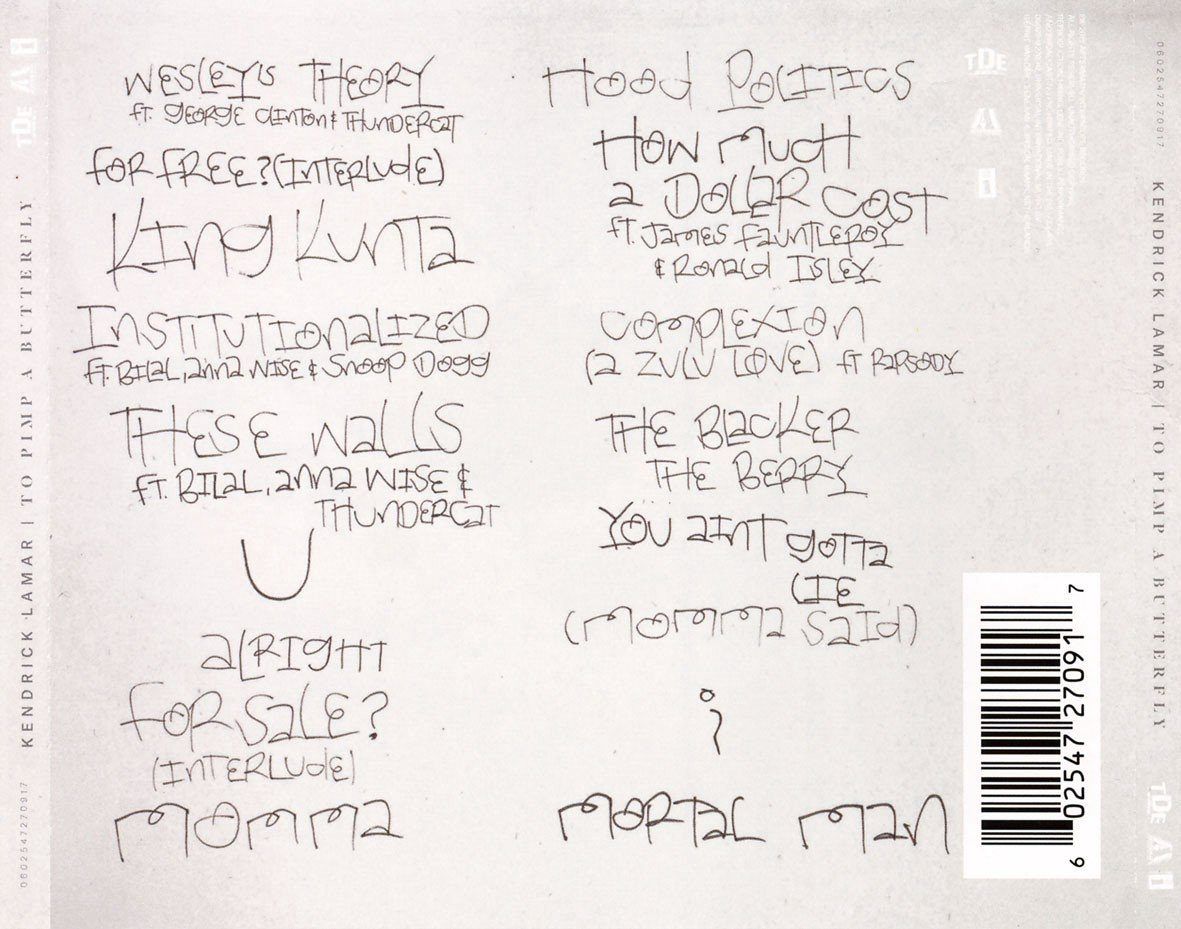 WESLEY'S THEORY
ft. GEORGE CLINTON & THUNDERCAT
FOR FREE? (INTERLUDE)
KING KUNTA
INSTITUTIONALIZED
ft. BILAL, anna WISE & Snoop Dogg
THESE WALLS
ft. BILAL, anna WISE &
THUNDERCAT
U
aLRIGHT
FOR SaLE?
(INTERLUDE)
MOMMa
Hood POLITICS
HOW MUCH
a DOLLaR COST
ft. JaMES FaUNTLEROY
& RONaLd ISLEY
COMPLEXION
(a ZULU LOVE) ft RaPSODY
THE BLaCKER
THE BERRY
YOU aINT gOTTa
LIE
(MOMMa SaId)
i
MORTaL MaN
KENDRICK LAMAR | TO PIMP A BUTTERFLY
0602547270917
TDE
KENDRICK LAMAR | TO PIMP A BUTTERFLY
0602547270917
TDE
TDE
6 02547 27091 7